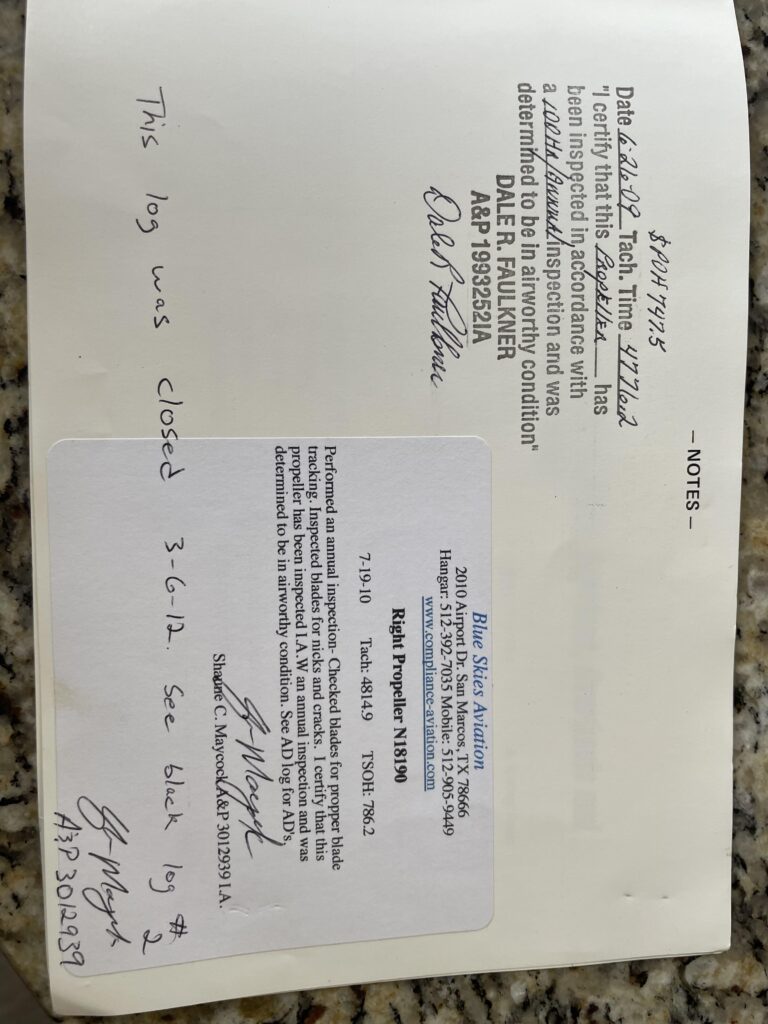 — NOTES —
SPOH 747.5
Date 6-26-09 Tach. Time 4776.2
"I certify that this Propeller has
been inspected in accordance with
a 100Hr/Annual inspection and was
determined to be in airworthy condition"
DALE R. FAULKNER
A&P 1993252IA
Dale R Faulkner
Blue Skies Aviation
2010 Airport Dr. San Marcos, TX 78666
Hangar: 512-392-7035 Mobile: 512-905-9449
www.compliance-aviation.com
Right Propeller N18190
7-19-10 Tach: 4814.9 TSOH: 786.2
Performed an annual inspection- Checked blades for propper blade
tracking. Inspected blades for nicks and cracks. I certify that this
propeller has been inspected I.A.W an annual inspection and was
determined to be in airworthy condition. See AD log for AD's
Shayne C. Maycock A&P 3012939 I.A.
This log was closed 3-6-12. See black log #2
A&P 3012939